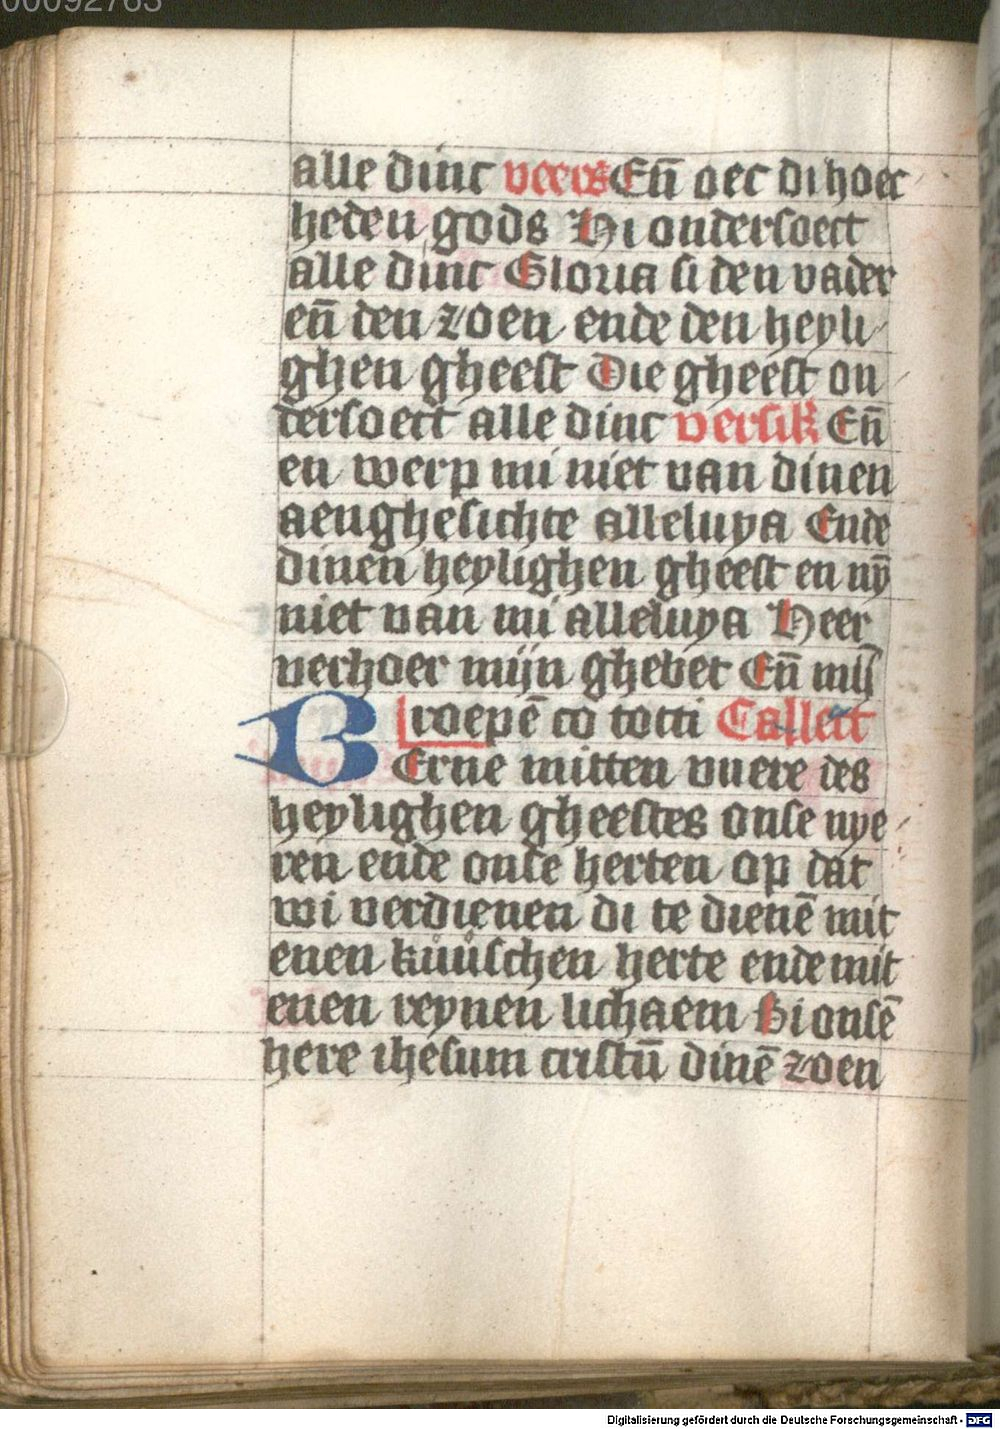 00092763
alle dinc veers En̄ oec di hoec
heden gods Hi ondersoect
alle dinc Gloria si den vader
en̄ den zoen ende den heyli
ghen gheest Die gheest on
dersoect alle dinc versik̄ En̄
en werp mi niet van dinen
aenghesichte alleluya Ende
dinen heylighen gheest en nȳ
niet van mi alleluya Heer
verhoer mijn ghebet En̄ mij
roepē co totti Collect
BErne mitten vuere des
heylighen gheestes onse nye
ren ende onse herten op dat
wi verdienen di te dienē mit
enen kůůschen herte ende mit
enen reynen lichaem Bi onsē
here ihesum cristū dinē zoen
Digitalisierung gefördert durch die Deutsche Forschungsgemeinschaft - DFG